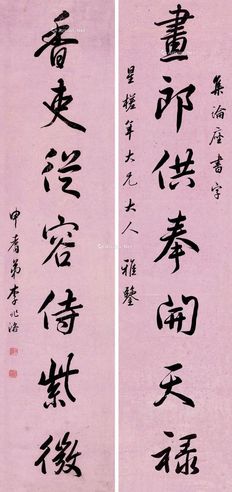 集論座書字
畫郎供奉開天祿
星槎年大兄大人雅鑒
香吏從容侍紫微
申耆弟李兆洛